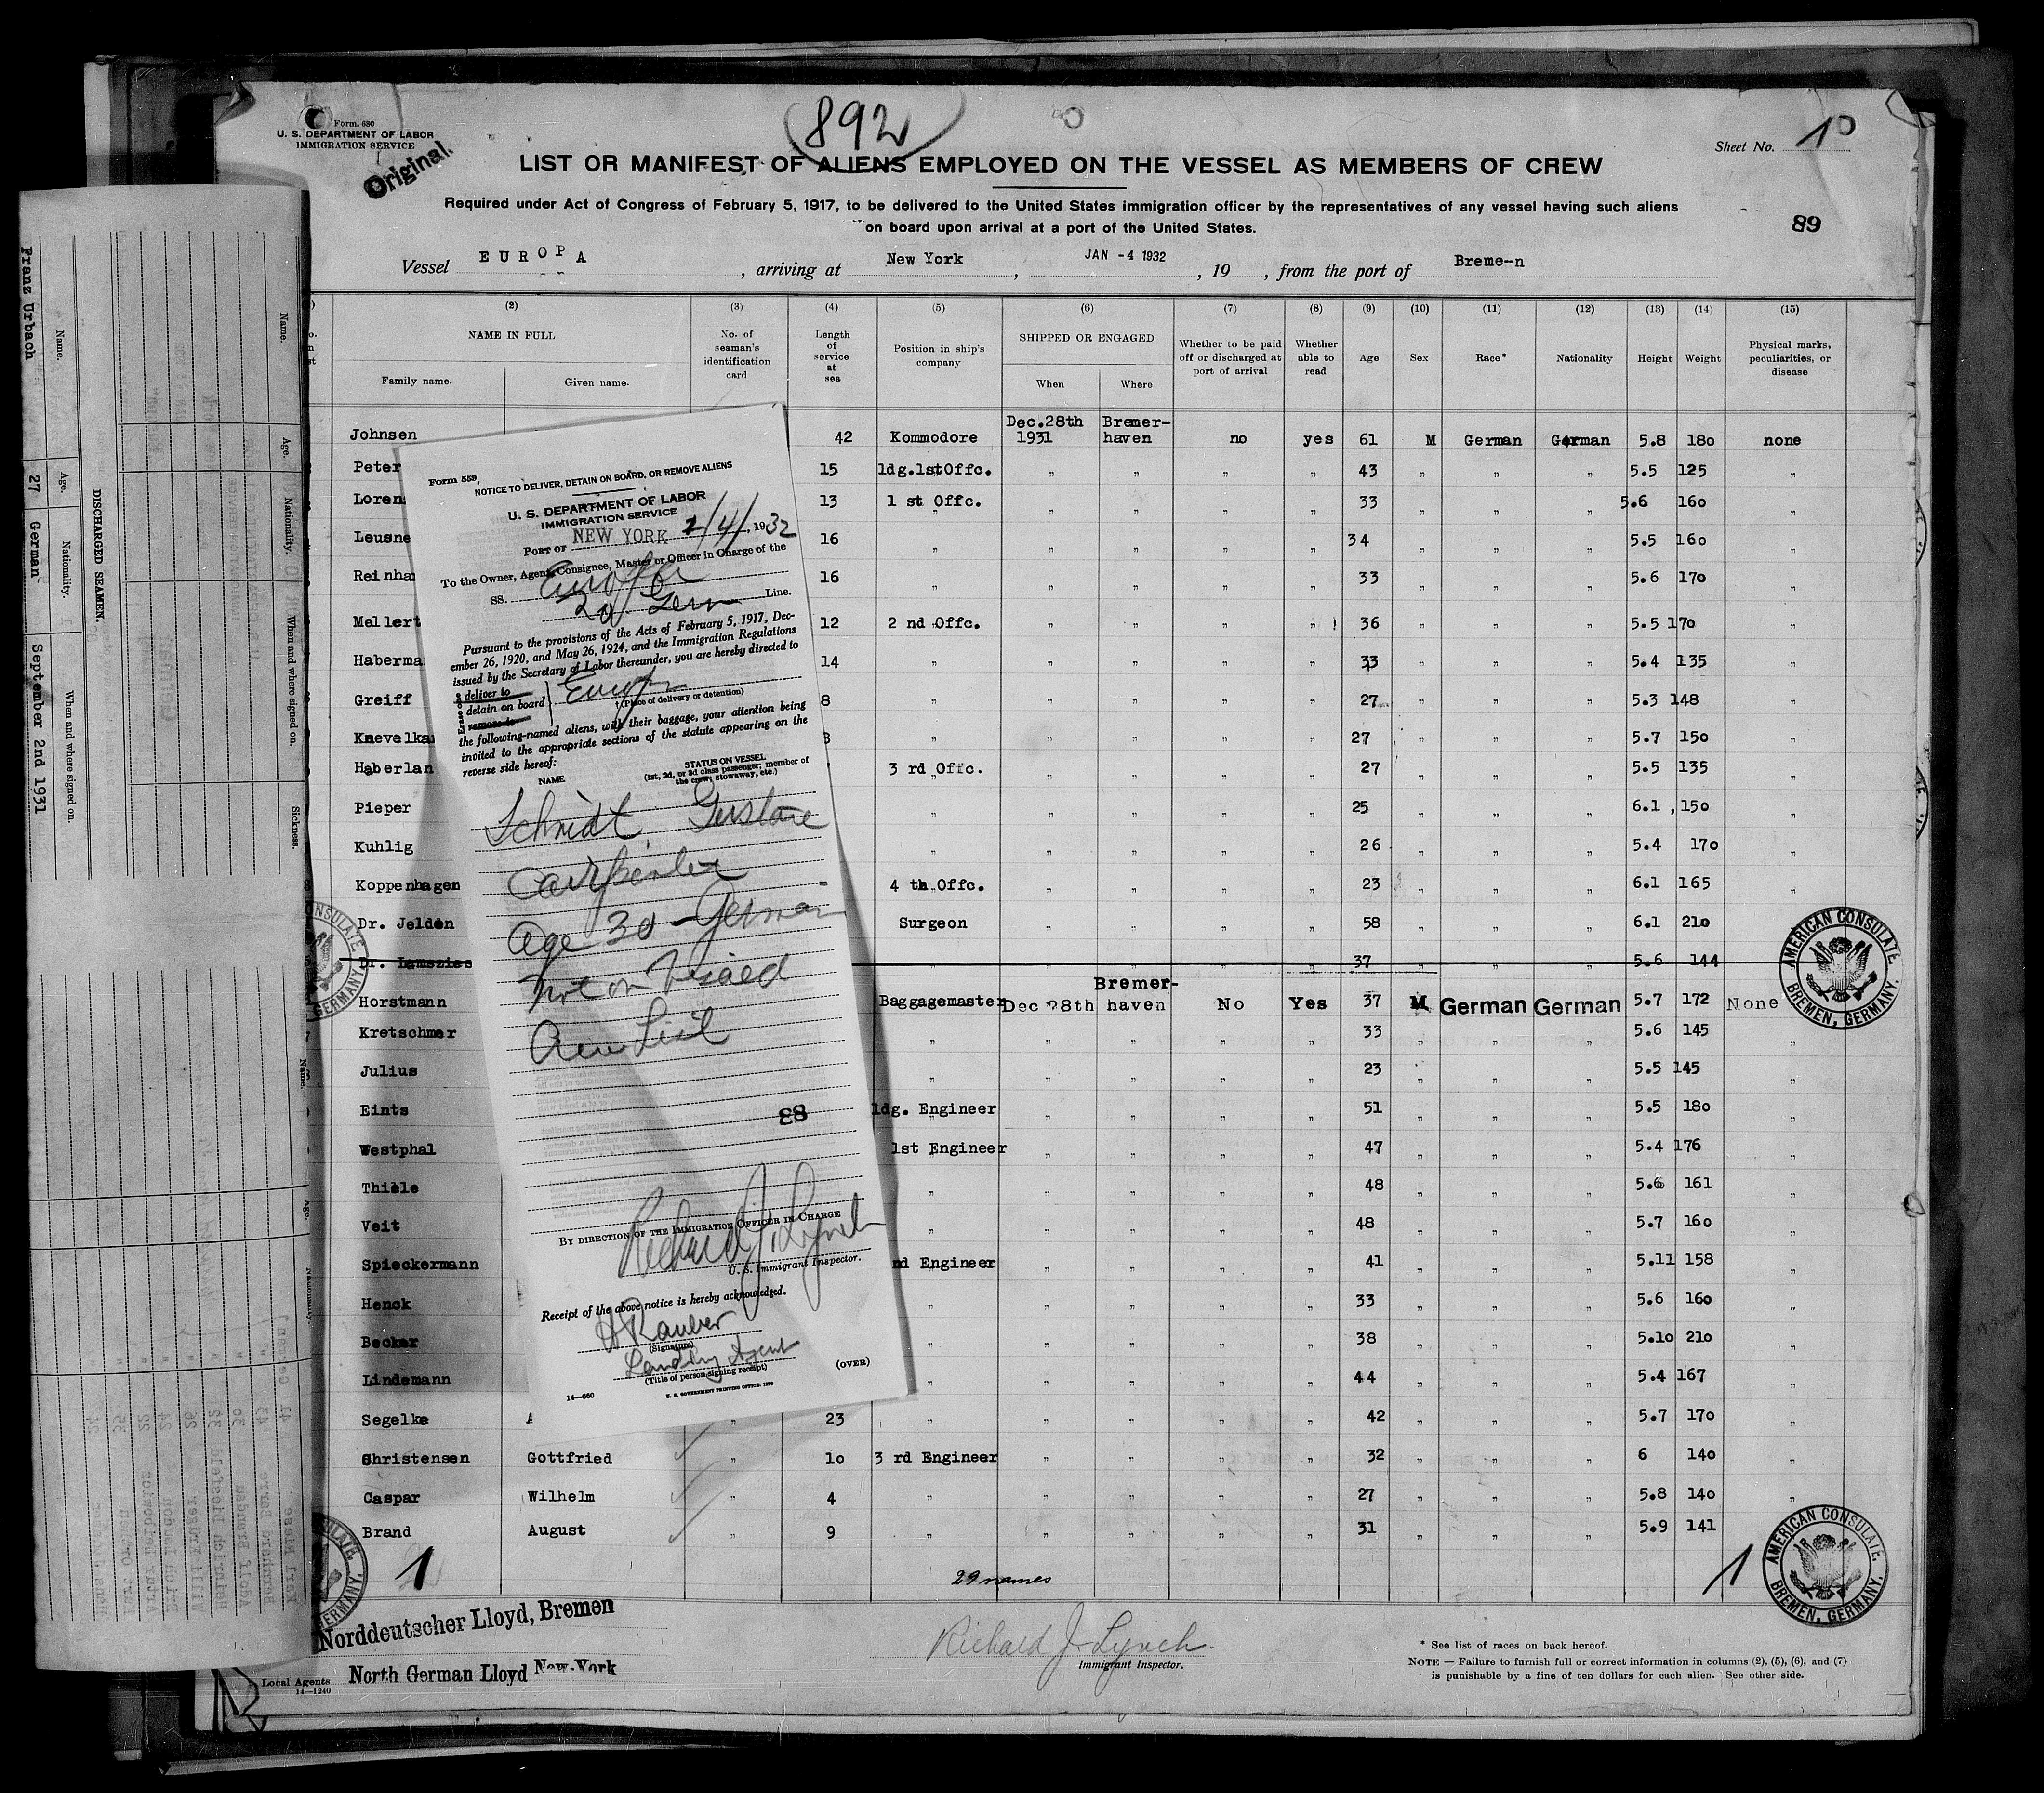 892
Form. 680
U. S. DEPARTMENT OF LABOR
IMMIGRATION SERVICE
Original.
Sheet No. 1
LIST OR MANIFEST OF ALIENS EMPLOYED ON THE VESSEL AS MEMBERS OF CREW
Required under Act of Congress of February 5, 1917, to be delivered to the United States immigration officer by the representatives of any vessel having such aliens
on board upon arrival at a port of the United States.
89
Vessel EUROPA, arriving at New York, JAN -4 1932, 19 , from the port of Breme-n
(2) (3) (4) (5) (6) (7) (8) (9) (10) (11) (12) (13) (14) (15)
NAME IN FULL
Family name. Given name.
No. of seaman's identification card
Length of service at sea
Position in ship's company
SHIPPED OR ENGAGED
When Where
Whether to be paid off or discharged at port of arrival
Whether able to read
Age
Sex
Race*
Nationality
Height
Weight
Physical marks, peculiarities, or disease
Johnsen 42 Kommodore Dec.28th 1931 Bremer-haven no yes 61 M German German 5.8 180 none
Peter 15 ldg.1stOffc. " " " " 43 " " " 5.5 125 "
Loren 13 1 st Offc. " " " " 33 " " " 5.6 160 "
Leusne 16 " " " " " 34 " " " 5.5 160 "
Reinha 16 " " " " " 33 " " " 5.6 170 "
Mellert 12 2 nd Offc. " " " " 36 " " " 5.5 170 "
Haberma 14 " " " " " 33 " " " 5.4 135 "
Greiff 8 " " " " " 27 " " " 5.3 148 "
Knevelka 8 " " " " " 27 " " " 5.7 150 "
Haberlan 3 rd Offc. " " " " 27 " " " 5.5 135 "
Pieper " " " " " 25 " " " 6.1 150 "
Kuhlig " " " " " 26 " " " 5.4 170 "
Koppenhagen 4 th Offc. " " " " 23 " " " 6.1 165 "
Dr. Jelden Surgeon " " " " 58 " " " 6.1 210 "
Dr. Lamszies " " " " " 37 " " " 5.6 144
Horstmann Baggagemaster Dec 28th Bremer-haven No Yes 37 M German German 5.7 172 None
Kretschmer " " " " " 33 " " " 5.6 145 "
Julius " " " " " 23 " " " 5.5 145 "
Eints ldg. Engineer " " " " 51 " " " 5.5 180 "
Westphal 1st Engineer " " " " 47 " " " 5.4 176 "
Thiele " " " " " 48 " " " 5.6 161 "
Veit " " " " " 48 " " " 5.7 160 "
Spieckermann nd Engineer " " " " 41 " " " 5.11 158 "
Henck " " " " " 33 " " " 5.6 160 "
Becker " " " " " 38 " " " 5.10 210 "
Lindemann " " " " " 44 " " " 5.4 167 "
Segelke " 23 " " " " " 42 " " " 5.7 170 "
Christensen Gottfried " 10 3 rd Engineer " " " " 32 " " " 6 140 "
Caspar Wilhelm " 4 " " " " " 27 " " " 5.8 140 "
Brand August " 9 " " " " " 31 " " " 5.9 141 "
1
29 names
1
Norddeutscher Lloyd, Bremen
Local Agents North German Lloyd New-York
14—1240
Richard J. Lynch
Immigrant Inspector.
* See list of races on back hereof.
NOTE — Failure to furnish full or correct information in columns (2), (5), (6), and (7)
is punishable by a fine of ten dollars for each alien. See other side.
AMERICAN CONSULATE
BREMEN, GERMANY.
AMERICAN CONSULATE.
BREMEN, GERMANY.
Form 559
NOTICE TO DELIVER, DETAIN ON BOARD, OR REMOVE ALIENS
U. S. DEPARTMENT OF LABOR
IMMIGRATION SERVICE
PORT OF NEW YORK 1/4/, 1932
To the Owner, Agent, Consignee, Master or Officer in Charge of the
SS. Europa
Line.
Pursuant to the provisions of the Acts of February 5, 1917, Dec-
ember 26, 1920, and May 26, 1924, and the Immigration Regulations
issued by the Secretary of Labor thereunder, you are hereby directed to
deliver to
detain on board Europa
remove to
† (Place of delivery or detention)
the following-named aliens, with their baggage, your attention being
invited to the appropriate sections of the statute appearing on the
reverse side hereof:
NAME
STATUS ON VESSEL
(1st, 2d, or 3d class passenger; member of
the crew; stowaway, etc.)
Schmidt Gustave
Carpenter
Age 30 - German
Not on Visaed
Crew List
88
BY DIRECTION OF THE IMMIGRATION OFFICER IN CHARGE
Richard J. Lynch
U. S. Immigrant Inspector.
Receipt of the above notice is hereby acknowledged.
(Signature)
Landing Agent
(Title of person signing receipt)
(OVER)
14—660
U. S. GOVERNMENT PRINTING OFFICE
DISCHARGED SEAMEN.
Name. Age. Nationality. When and where signed on.
Franz Urbach 27 German September 2nd 1931
Name. Age. Nationality. When and where signed on. Sickness.
Name. Age. Nationality